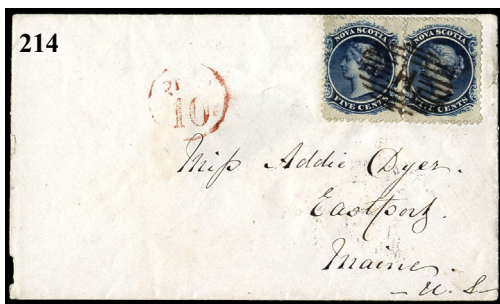 214
NOVA SCOTIA NOVA SCOTIA
FIVE CENTS CENTS
10
Miss Addie Dyer.
Eastport.
Maine.
U. S.